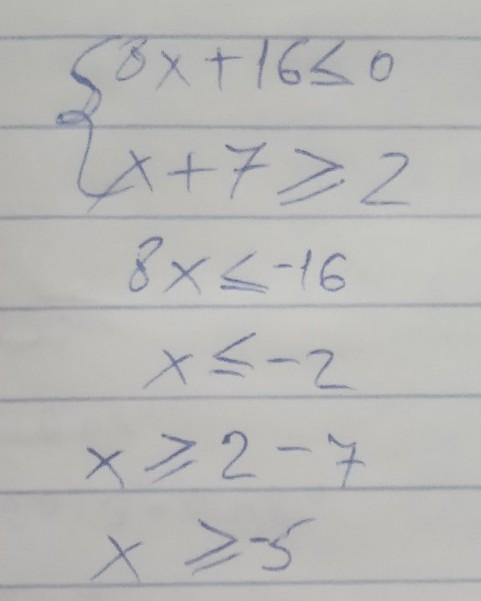 8x+16≤0
x+7≥2
8x≤-16
x≤-2
x≥2-7
x≥-5